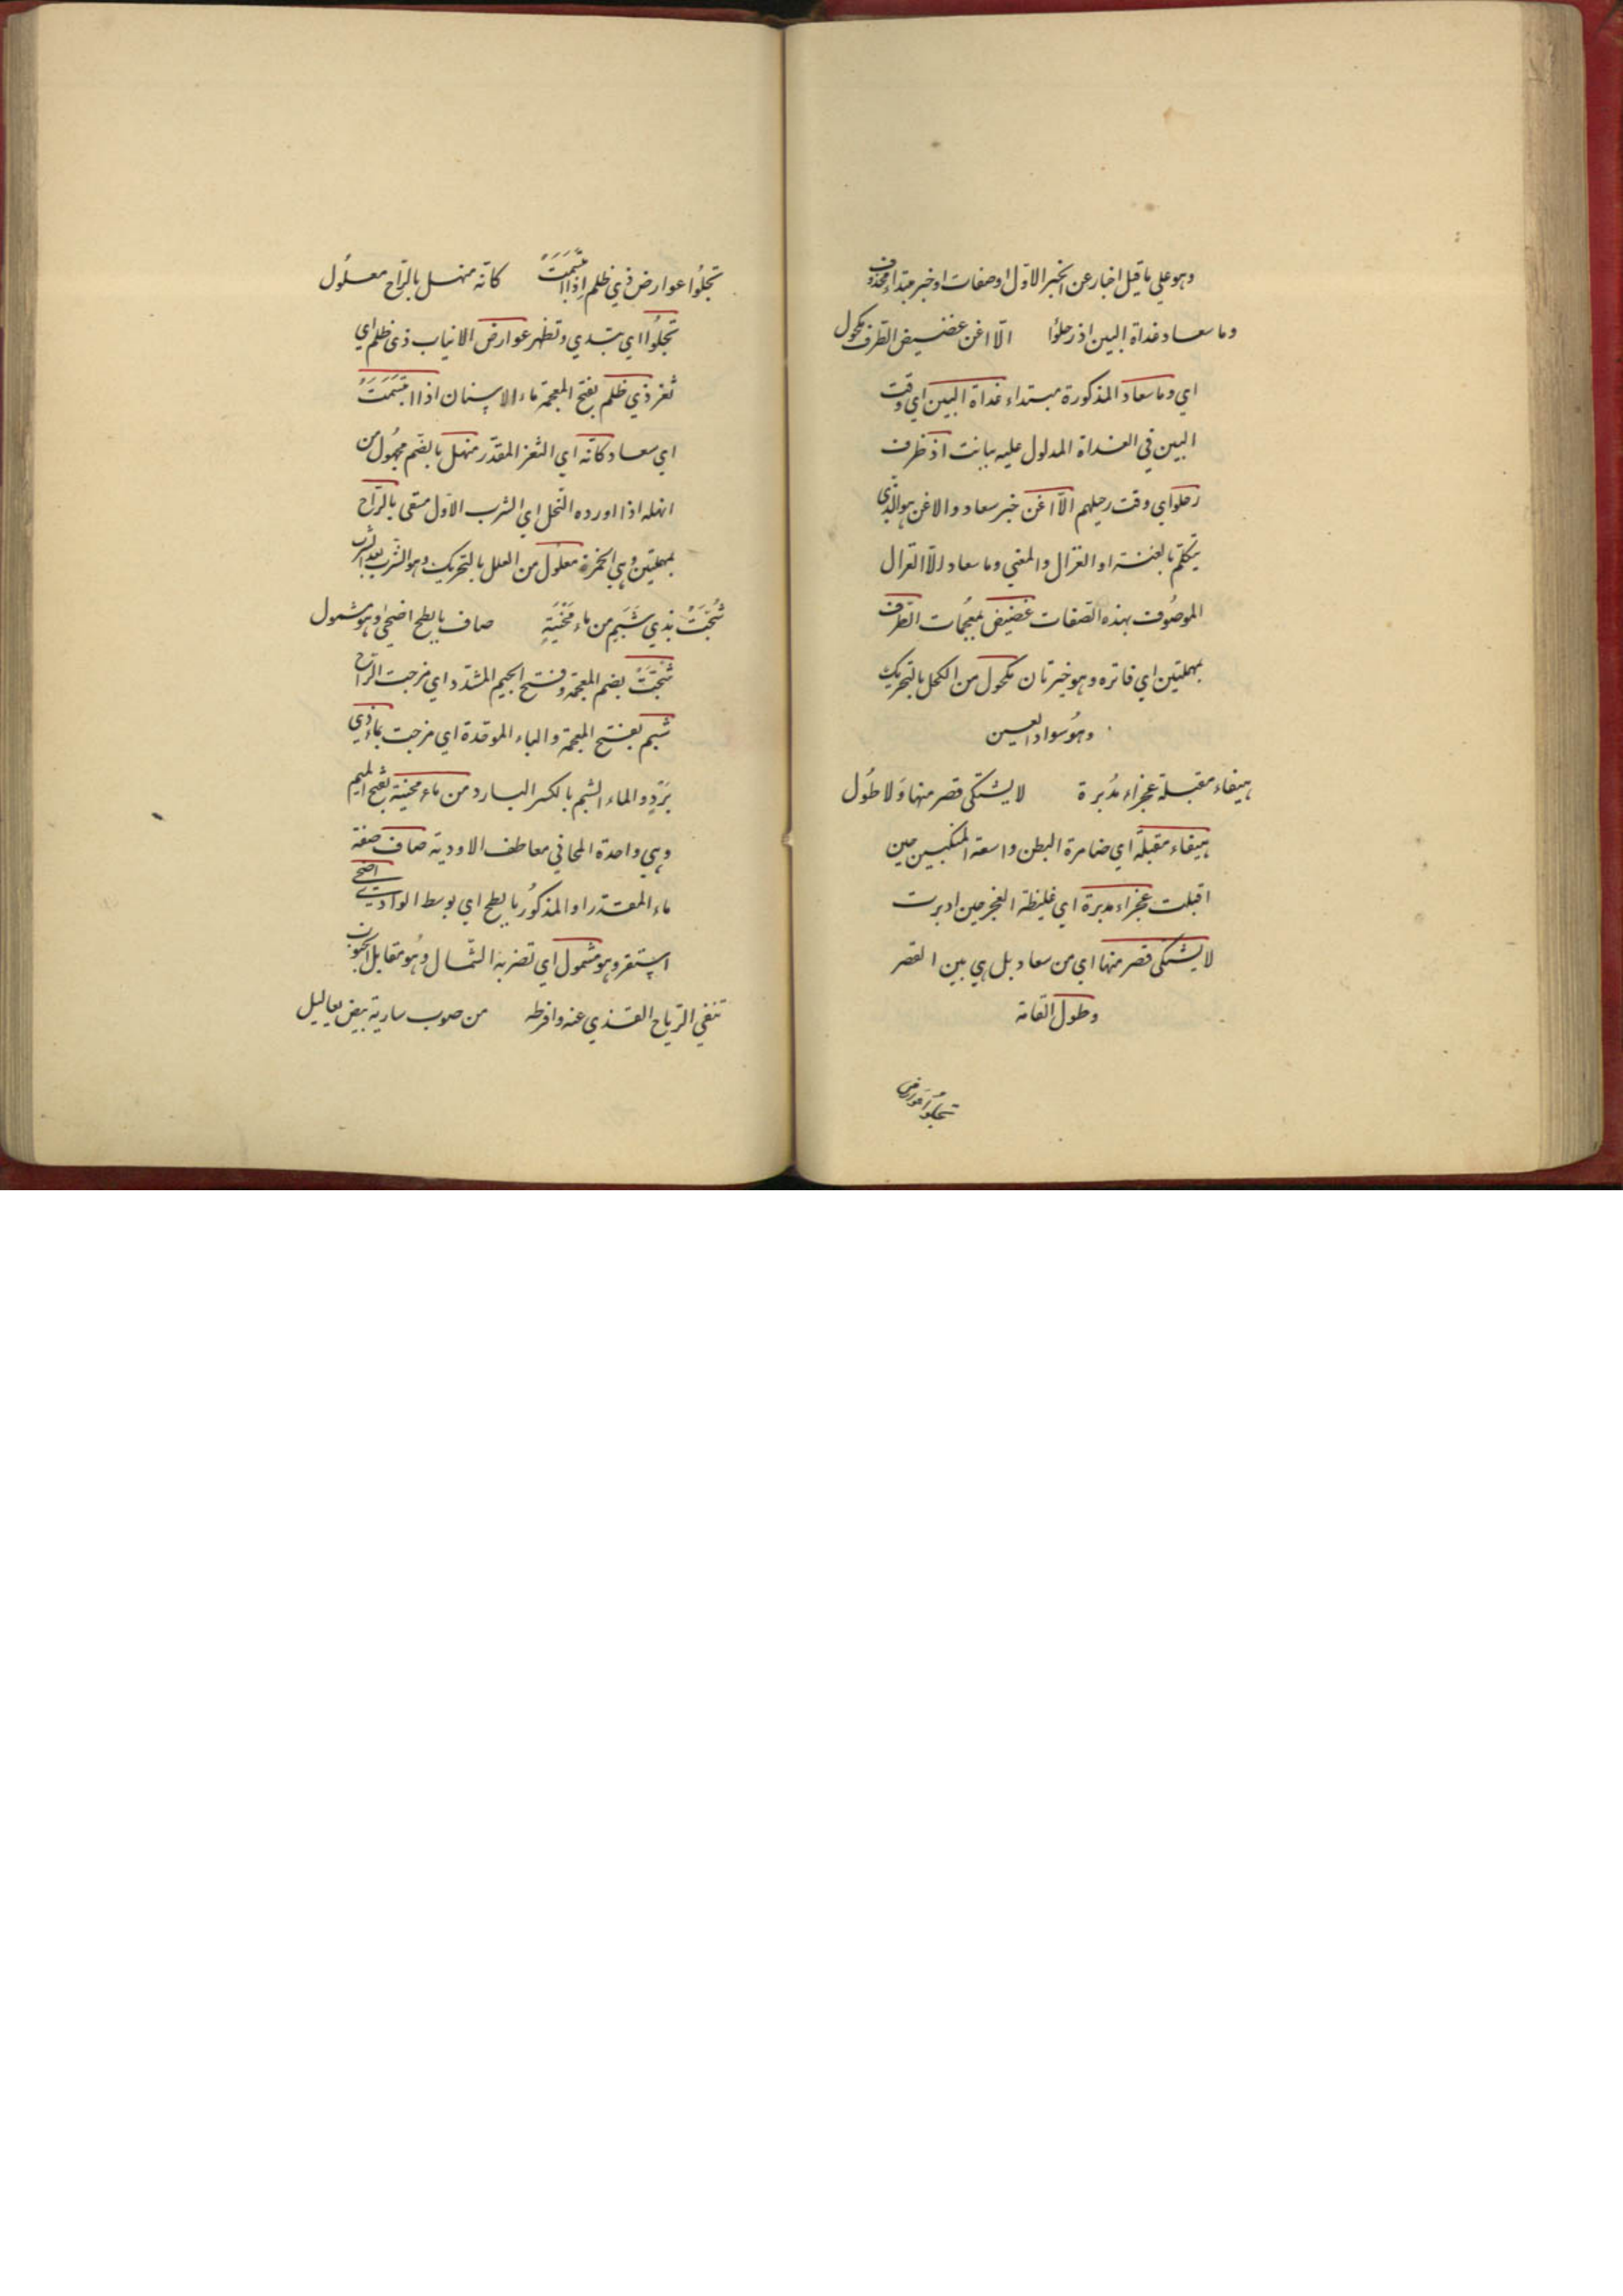 وهو علي ما قيل اخبار عن الخبر الاوّل او صفات او خبر مبتداء محذوف
وما سعاد غداة البين اذ رحلوُا الاّ اغن غضيض الطرف مكحول
اي وما سعاد المذكورة مبتداء غداة البين اي وقت
البين في الغداة المدلول عليه ببانت اذ ظرف
رحلوا اي وقت رحيلهم الاّ اغن خبر سعاد والاغن هو الّذي
يتكلّم بالغنة او الغزال والمعني وما سعاد الاّ الغزال
الموصُوف بهذه الصّفات غضيض بمعجُمات الطرف
بمهملتين اي فاتره وهو خبر ثان مكحول من الكحل بالتحريك
وهوُ سواد العين
هيفاء مقبلة عجزاء مدُبرة لا يشتكى قصر منها وَلا طوُل
هيفاء مقبلة اي ضامرة البطن واسعة المنكبين حين
اقبلت عجزاء مدبرة اي غليظة العجز حين ادبرت
لا يشتكى قصر منها اي من سعاد بل هي بين القصر
وطول القامة
تجلوُا عوارض
تجلوُا عوارض ذي ظلم اِذا ابتَسَمَتَْ كانّه منهل بالرّاح معلوُل
تجلوُا اي تبتدي وتظهر عوارض الانياب ذى ظلم اي
ثغر ذي ظلم بفتح المعجمة ماء الاسنان اذا ابتَسَمَتَْ
اي سعاد كانّه اي الثغر المقدّر منهل بالضّم مجهُول من
انهله اذا اورده النّحل اي الشرب الاوّل متقى بالرّاح
بمهلتين وهي الخمرة معلوُل من العلل بالتحريك وهو الشّرب بعد الشرب
شُجّتَْ بذي شَبَمٍ من ماءِ مَحْنيَةٍ صاف بابطح اضحي وهو مشمول
شجّتَْ بضم المعجمة وفتح الجيم المشدّد اي مزجت الرّاح
شبم بفتح المعجمة والباء الموحّدة اي مزجت بماء ذي
بَرَدٍ والماء الشبم بالكسر البارد من ماء محنية بفتح الميم
وهي واحدة المحاني معاطف الاودية صاف صفة
ماء المقدّر او المذكوُر بابطح اي بوسط الوادي اضحى
استقر وهو مشمول اي تضربه الشّمال وهُو مقابل الجنوب
تنفي الرّياح القذي عنه وافرطه من صوب سارية بيض يعاليل